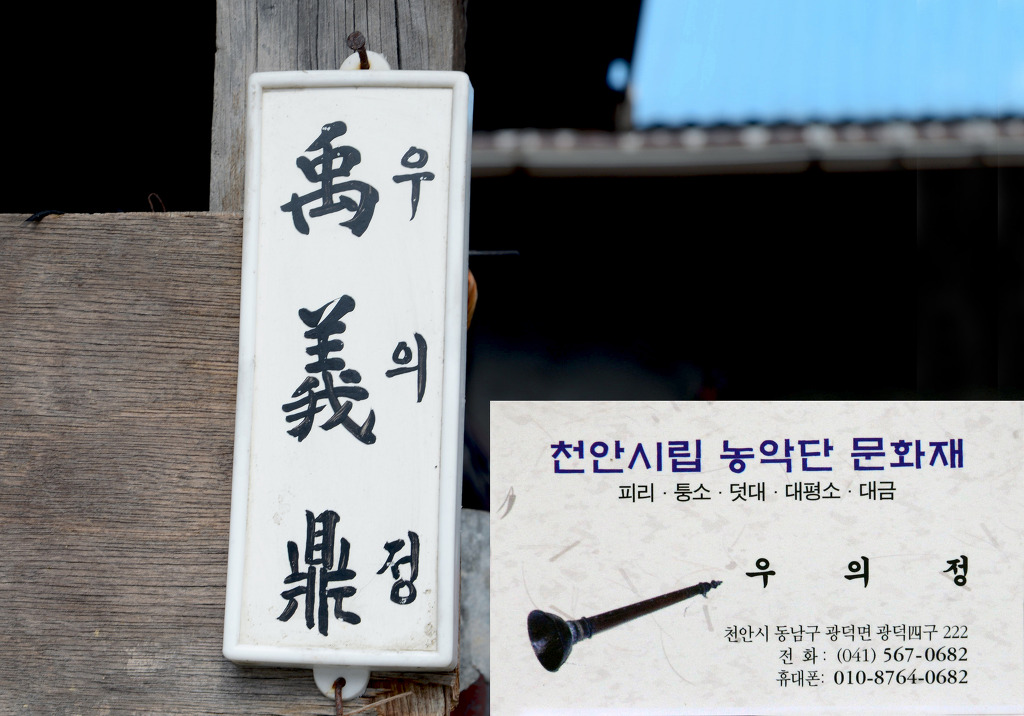 禹 우
義 의
鼎 정
천안시립 농악단 문화재
피리 · 퉁소 · 덧대 · 대평소 · 대금
우 의 정
천안시 동남구 광덕면 광덕四구 222
전 화 : (041) 567-0682
휴대폰: 010-8764-0682